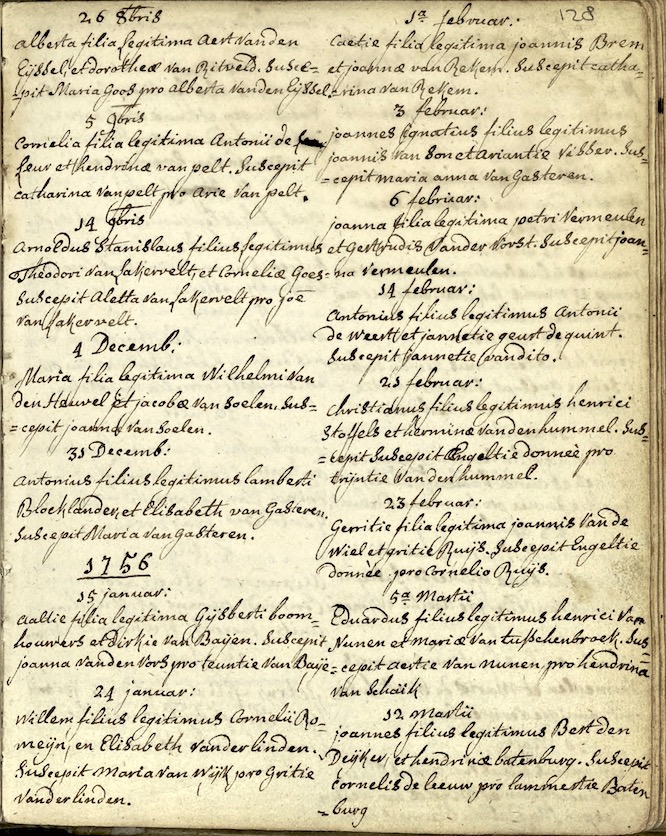 26 8bris
Alberta filia legitima Aert Vanden
Eijssel, et dorotheæ van Ritveld. Susce=
=pit Maria Goos pro Alberta Vanden Eijssel.
5 9bris
Cornelia filia legitima Antonii de
leur et hendrinæ van pelt. Suscepit
Catharina Van pelt pro Arie Van pelt.
14 9bris
Arnoldus Stanislaus filius legitimus
Theodori van Lakervelt, et Corneliæ Goes=
Suscepit Aletta van Lakervelt pro joe
van Lakervelt.
4 Decemb:
Maria filia legitima Wilhelmi Van
den Heuvel et jacobæ van Soelen. Sus=
=cepit joanna Van Soelen.
31 Decemb:
Antonius filius legitimus lamberti
Blocklander, et Elisabeth van Gasteren.
Suscepit Maria Van Gasteren.
1756
15 januar:
Aaltie filia legitima Gijsberti boom=
houwers et Dirkie van Baijen. Suscepit
joanna Vanden Vors pro teuntie Van Baije=
24 januar:
Willem filius legitimus Cornelii Ro=
meijn, en Elisabeth Vander linden.
Suscepit Maria Van Wijk pro Gritie
Vander linden.
128
1a februar:
Caetie filia legitima joannis Brem
et joannæ van Rekem. Suscepit Catha=
=rina Van Rekem.
3 februar:
joannes ignatius filius legitimus
joannis Van Son et Ariantie Visser. Sus=
=cepit maria anna Van Gasteren.
6 februar:
joanna filia legitima petri Vermeulen
et Gertrudis Vander Vorst. Suscepit joan=
na Vermeulen.
14 februar:
Antonius filius legitimus Antonii
de Weert, et jannetie geurt de quint.
Suscepit jannetie Van dito.
21 februar:
Christianus filius legitimus henrici
Stoffels et herminæ Vanden hummel. Sus=
=cepit Suscepit Engeltie donneè pro
trijntie Vanden hummel.
23 februar:
Gerritie filia legitima joannis Van de
Wiel et gritie Ruijs. Suscepit Engeltie
donnée pro Cornelio Ruijs.
5a Martii
Eduardus filius legitimus henrici Van
Nunen et Mariæ Van tusschenbroek. Sus=
=cepit Aertie van Nunen, pro hendrina
Van Schaik
12 Martii
joannes filius legitimus Bert den
Deijker, et hendrinæ batenburg. Suscepit
Cornelis de leeuw pro lammertie Baten
=burg